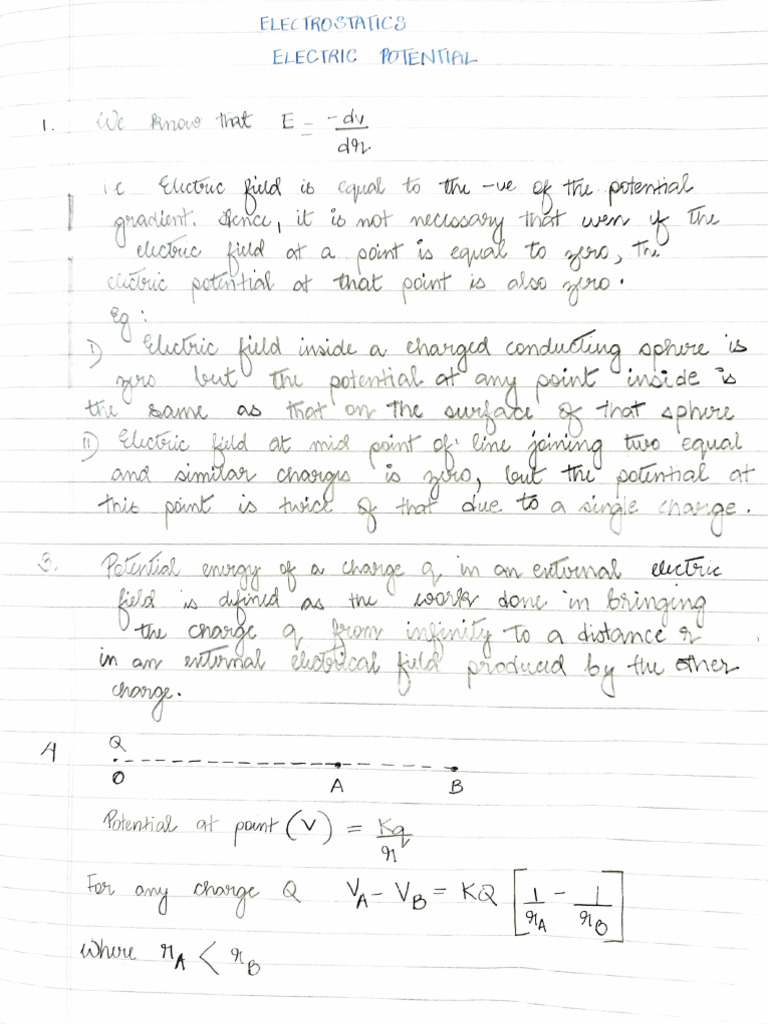 ELECTROSTATICS
ELECTRIC POTENTIAL
1. We know that E = -dv/dr
i.e Electric field is equal to the -ve of the potential
gradient. Hence, it is not necessary that even if the
electric field at a point is equal to zero, the
electric potential at that point is also zero.
Eg:
I) Electric field inside a charged conducting sphere is
zero but the potential at any point inside is
the same as that on the surface of that sphere
II) Electric field at mid point of line joining two equal
and similar charges is zero, but the potential at
this point is twice of that due to a single charge.
3. Potential energy of a charge q in an external electric
field is defined as the work done in bringing
the charge q from infinity to a distance r
in an external electrical field produced by the other
charge.
4 Q
O A B
Potential at point (V) = Kq/r
For any charge Q V_A - V_B = KQ [1/r_A - 1/r_B]
where r_A < r_B